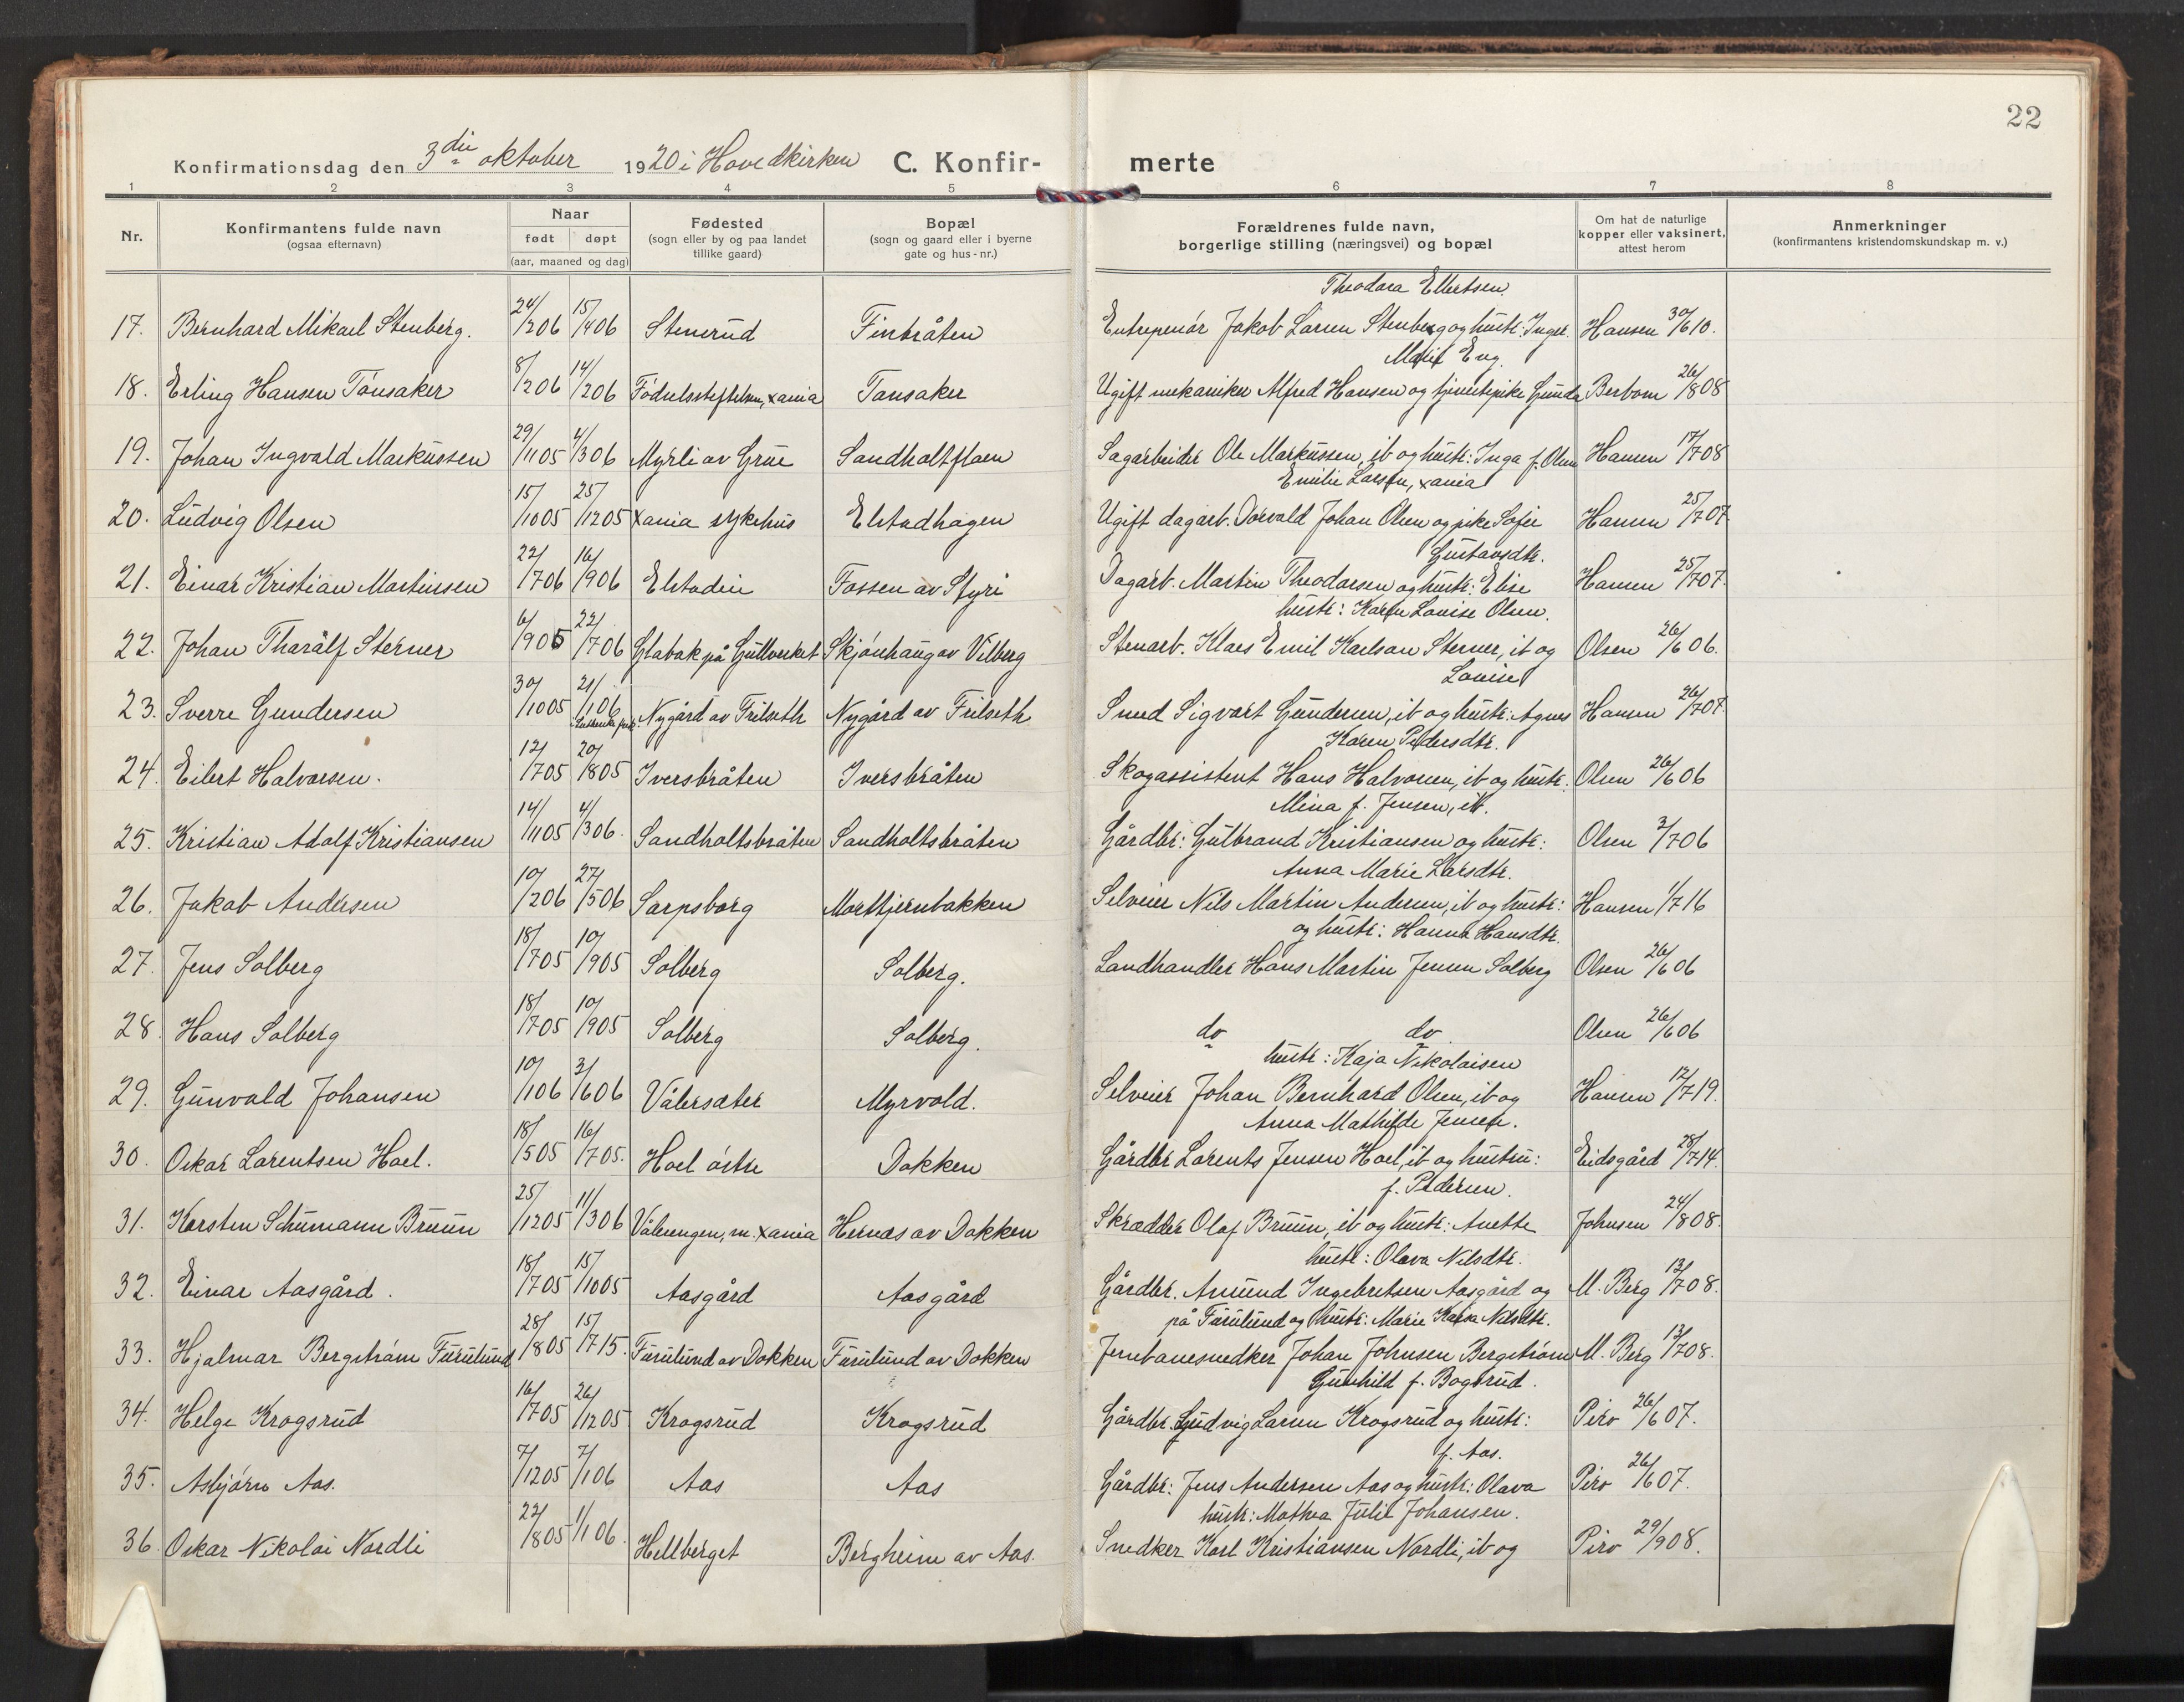 22
Konfirmationsdag den 3die oktober 1920 i Hovedkirken C. Konfir- merte
1 2 3 4 5 6 7 8
Nr. Konfirmantens fulde navn (ogsaa efternavn) Naar født døpt (aar, maaned og dag) Fødested (sogn eller by og paa landet tillike gaard) Bopæl (sogn og gaard eller i byerne gate og hus-nr.) Forældrenes fulde navn, borgerlige stilling (næringsvei) og bopæl Om hat de naturlige kopper eller vaksinert, attest herom Anmerkninger (konfirmantens kristendomskundskap m. v.)
Theodora Ellertsen
17. Bernhard Mikael Stenberg. 24/206 15/406 Stenrud Finbråten Entreprenör Jakob Larsen Stenberg og hustr: Inger Hansen 30/610.
Marie Eng.
18. Erling Hansen Tönsaker 8/206 14/206 Födselsstiftelsen, Xania Tonsaker Ugift mekaniker Alfred Hansen og tjenestepike Gunda Berbom 26/808
19. Johan Ingvald Markussen 29/1105 4/306 Myrli av Grue Sandholtflaen Sagarbeider Ole Markussen, ib og hustr: Inga f. Olsen Hansen 17/708
Emilie Larsen, Xania
20. Ludvig Olsen 15/1005 25/1205 Xania sykehus Elstadhagen Ugift dagarb. Torvald Johan Olsen og pike Sofie Hansen 25/707
Gustavsdtr.
21. Einar Kristian Martinsen 22/706 16/906 Elstadeie Fossen av Styri Dagarb. Martin Theodorsen og hustr: Elise Hansen 25/707.
hustr: Karen Louise Olsen.
22. Johan Tharalf Sterner 6/905 22/706 Glabak på Gullverket Skjönhaug av Vilberg Stenarb. Klaes Emil Karlson Sterner, ib og Olsen 26/606.
Louise
23. Sverre Gundersen 30/1005 21/106 Nygård av Frilseth Nygård av Frilseth Smed Sigvart Gundersen, ib og hustr: Agnes Hansen 26/707.
Karen Pedersdtr.
24. Eilert Halvorsen. 12/705 20/805 Iversbråten Iversbråten Skogassistent Hans Halvorsen, ib og hustr. Olsen 26/606
Mina f. Jensen, ib.
25. Kristian Adolf Kristiansen 14/1105 4/306. Sandholtsbråten Sandholtsbråten Gårdbr: Gulbrand Kristiansen og hustr: Olsen 2/706
Anna Marie Larsdtr.
26. Jakob Andersen 10/206 27/506 Sarpsborg Morttjernbakken Selveier Nils Martin Andersen, ib og hustr: Hansen 1/716
og hustr: Hanna Hansdtr.
27. Jens Solberg 18/705 10/905 Solberg Solberg. Landhandler Hans Martin Jensen Solberg Olsen 26/606
28. Hans Solberg 18/705 10/905 Solberg Solberg. do do Olsen 26/606
hustr: Kaja Nikolaisen
29. Gunvald Johansen 10/106 3/606 Vålersæter Myrvold. Selveier Johan Bernhard Olsen, ib og Hansen 12/719.
Anna Mathilde Jensen.
30. Oskar Lorentsen Hoel. 18/505 16/705. Hoel östre Dokken Gårdbr Lorents Jensen Hoel, ib og hustru: Eidsgård 28/714.
f. Pedersen.
31. Karsten Schumann Bruun 25/1205 11/306 Vålerengen, m. Xania Hernæs av Dokken Skrædder Olaf Bruun, ib og hustr: Anette Johnsen 24/808.
hustr: Olava Nilsdtr.
32. Einar Aasgård. 18/705 15/1005 Aasgård Aasgård Gårdbr. Amund Ingebretsen Aasgård og M. Berg 13/708.
på Furulund og hustr: Marie Kaisa Nilsdtr.
33. Hjalmar Bergström Furulund 28/805 15/715. Furulund av Dokken Furulund av Dokken Jernbanesnedker Johan Johnsen Bergström M. Berg 13/708.
Gunhild f. Bogsrud.
34. Helge Krogsrud 16/705 26/1205 Krogsrud Krogsrud Gårdbr. Ludvig Larsen Krogsrud og hustr: Piro 26/607.
f. Aas.
35. Asbjörn Aas. 7/1205 7/106 Aas Aas Gårdbr: Jens Andersen Aas og hustr: Olava Piro 26/607.
hustr: Mathea Julie Johansen.
36. Oskar Nikolai Nordli 22/805 1/106. Hellberget Bergheim av Aas. Snedker Karl Kristiansen Nordli, ib og Piro 29/908.